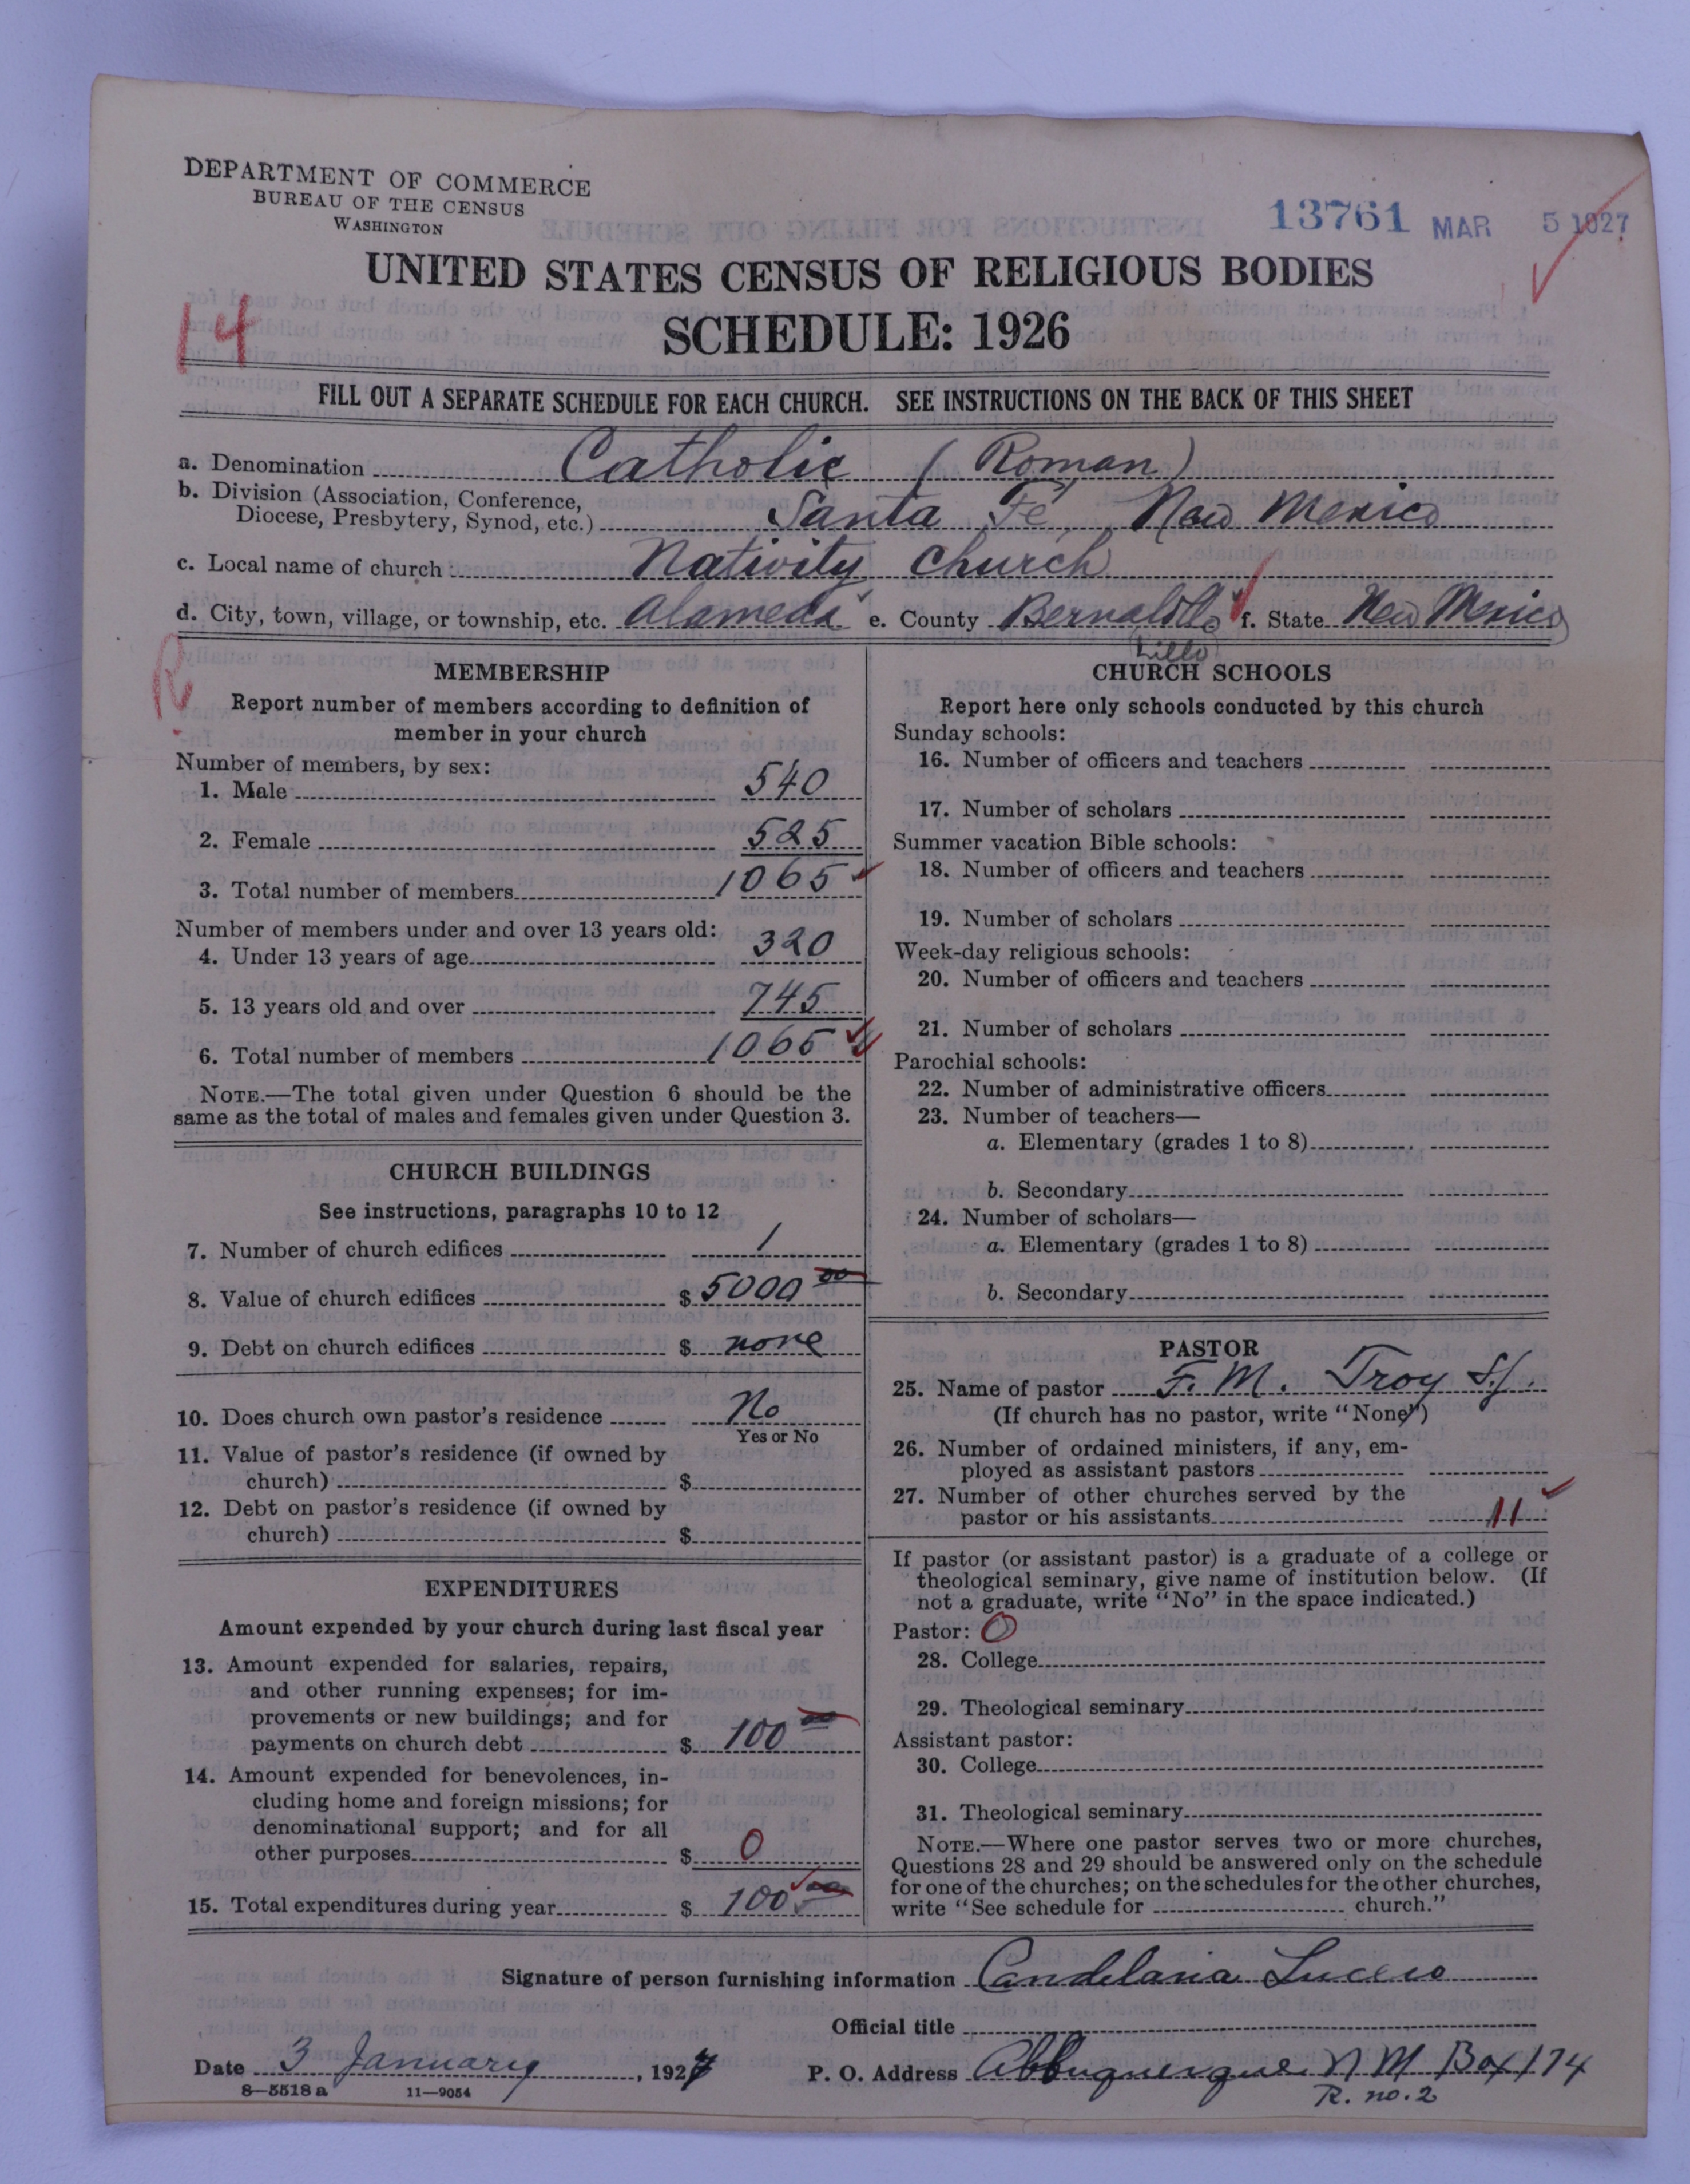 DEPARTMENT OF COMMERCE
BUREAU OF THE CENSUS
WASHINGTON
13761 MAR 5 1927
UNITED STATES CENSUS OF RELIGIOUS BODIES
SCHEDULE: 1926
14
FILL OUT A SEPARATE SCHEDULE FOR EACH CHURCH. SEE INSTRUCTIONS ON THE BACK OF THIS SHEET
a. Denomination Catholic (Roman)
b. Division (Association, Conference,
Diocese, Presbytery, Synod, etc.) Santa Fé, New Mexico
c. Local name of church Nativity Church
d. City, town, village, or township, etc. Alameda e. County Bernalillo f. State New Mexico
lillo
R
MEMBERSHIP
Report number of members according to definition of
member in your church
Number of members, by sex:
1. Male 540
2. Female 525
3. Total number of members 1065
Number of members under and over 13 years old:
4. Under 13 years of age 320
5. 13 years old and over 745
6. Total number of members 1065
NOTE.—The total given under Question 6 should be the
same as the total of males and females given under Question 3.
CHURCH BUILDINGS
See instructions, paragraphs 10 to 12
7. Number of church edifices 1
8. Value of church edifices $ 5000 00
9. Debt on church edifices $ none
10. Does church own pastor's residence No
Yes or No
11. Value of pastor's residence (if owned by
church) $
12. Debt on pastor's residence (if owned by
church) $
EXPENDITURES
Amount expended by your church during last fiscal year
13. Amount expended for salaries, repairs,
and other running expenses; for im-
provements or new buildings; and for
payments on church debt $ 100 00
14. Amount expended for benevolences, in-
cluding home and foreign missions; for
denominational support; and for all
other purposes $ 0
15. Total expenditures during year $ 100 00
CHURCH SCHOOLS
Report here only schools conducted by this church
Sunday schools:
16. Number of officers and teachers
17. Number of scholars
Summer vacation Bible schools:
18. Number of officers and teachers
19. Number of scholars
Week-day religious schools:
20. Number of officers and teachers
21. Number of scholars
Parochial schools:
22. Number of administrative officers
23. Number of teachers—
a. Elementary (grades 1 to 8)
b. Secondary
24. Number of scholars—
a. Elementary (grades 1 to 8)
b. Secondary
PASTOR
25. Name of pastor F. M. Troy S.J.
(If church has no pastor, write "None")
26. Number of ordained ministers, if any, em-
ployed as assistant pastors
27. Number of other churches served by the
pastor or his assistants 11
If pastor (or assistant pastor) is a graduate of a college or
theological seminary, give name of institution below. (If
not a graduate, write "No" in the space indicated.)
Pastor: 0
28. College
29. Theological seminary
Assistant pastor:
30. College
31. Theological seminary
NOTE.—Where one pastor serves two or more churches,
Questions 28 and 29 should be answered only on the schedule
for one of the churches; on the schedules for the other churches,
write "See schedule for church."
Signature of person furnishing information Candelaria Lucero
Official title
Date 3 January, 1927 P. O. Address Albuquerque N M Box 174
8—5518 a 11—9054 R. no. 2